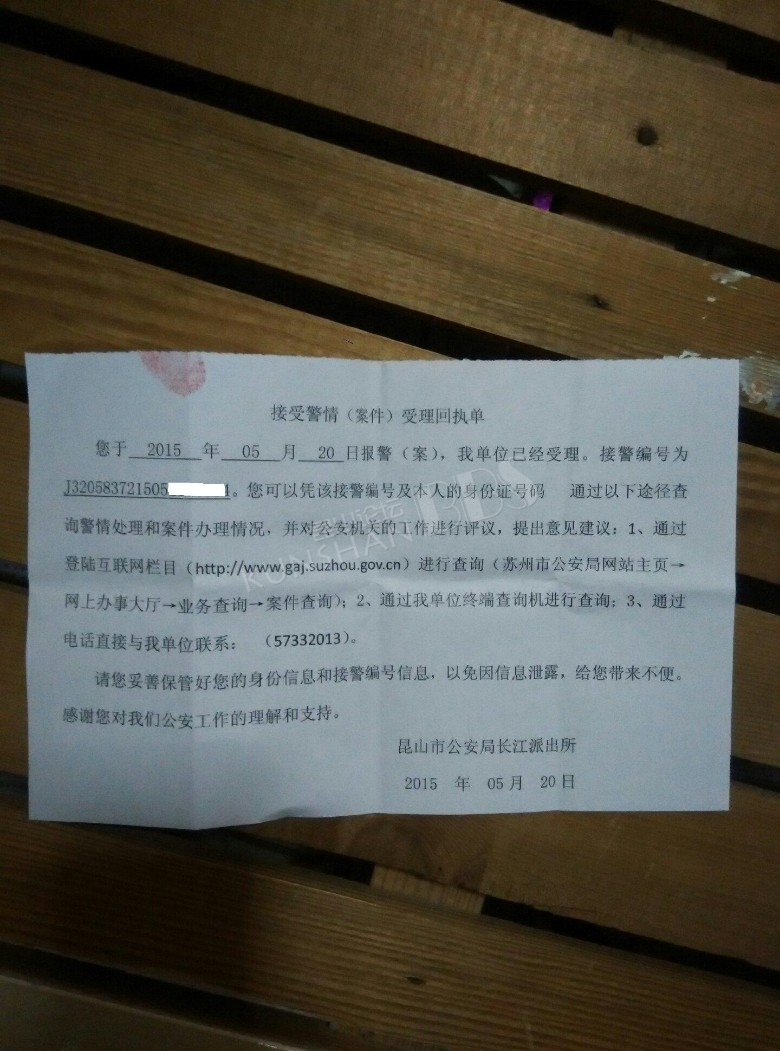 接受警情（案件）受理回执单
您于 2015 年 05 月 20 日报警（案），我单位已经受理。接警编号为
J320583721505 1。您可以凭该接警编号及本人的身份证号码 通过以下途径查
询警情处理和案件办理情况，并对公安机关的工作进行评议，提出意见建议：1、通过
登陆互联网栏目（http://www.gaj.suzhou.gov.cn）进行查询（苏州市公安局网站主页→
网上办事大厅→业务查询→案件查询）；2、通过我单位终端查询机进行查询；3、通过
电话直接与我单位联系：（57332013）。
请您妥善保管好您的身份信息和接警编号信息，以免因信息泄露，给您带来不便。
感谢您对我们公安工作的理解和支持。
昆山市公安局长江派出所
2015 年 05 月 20 日
KUNSHAN BBS